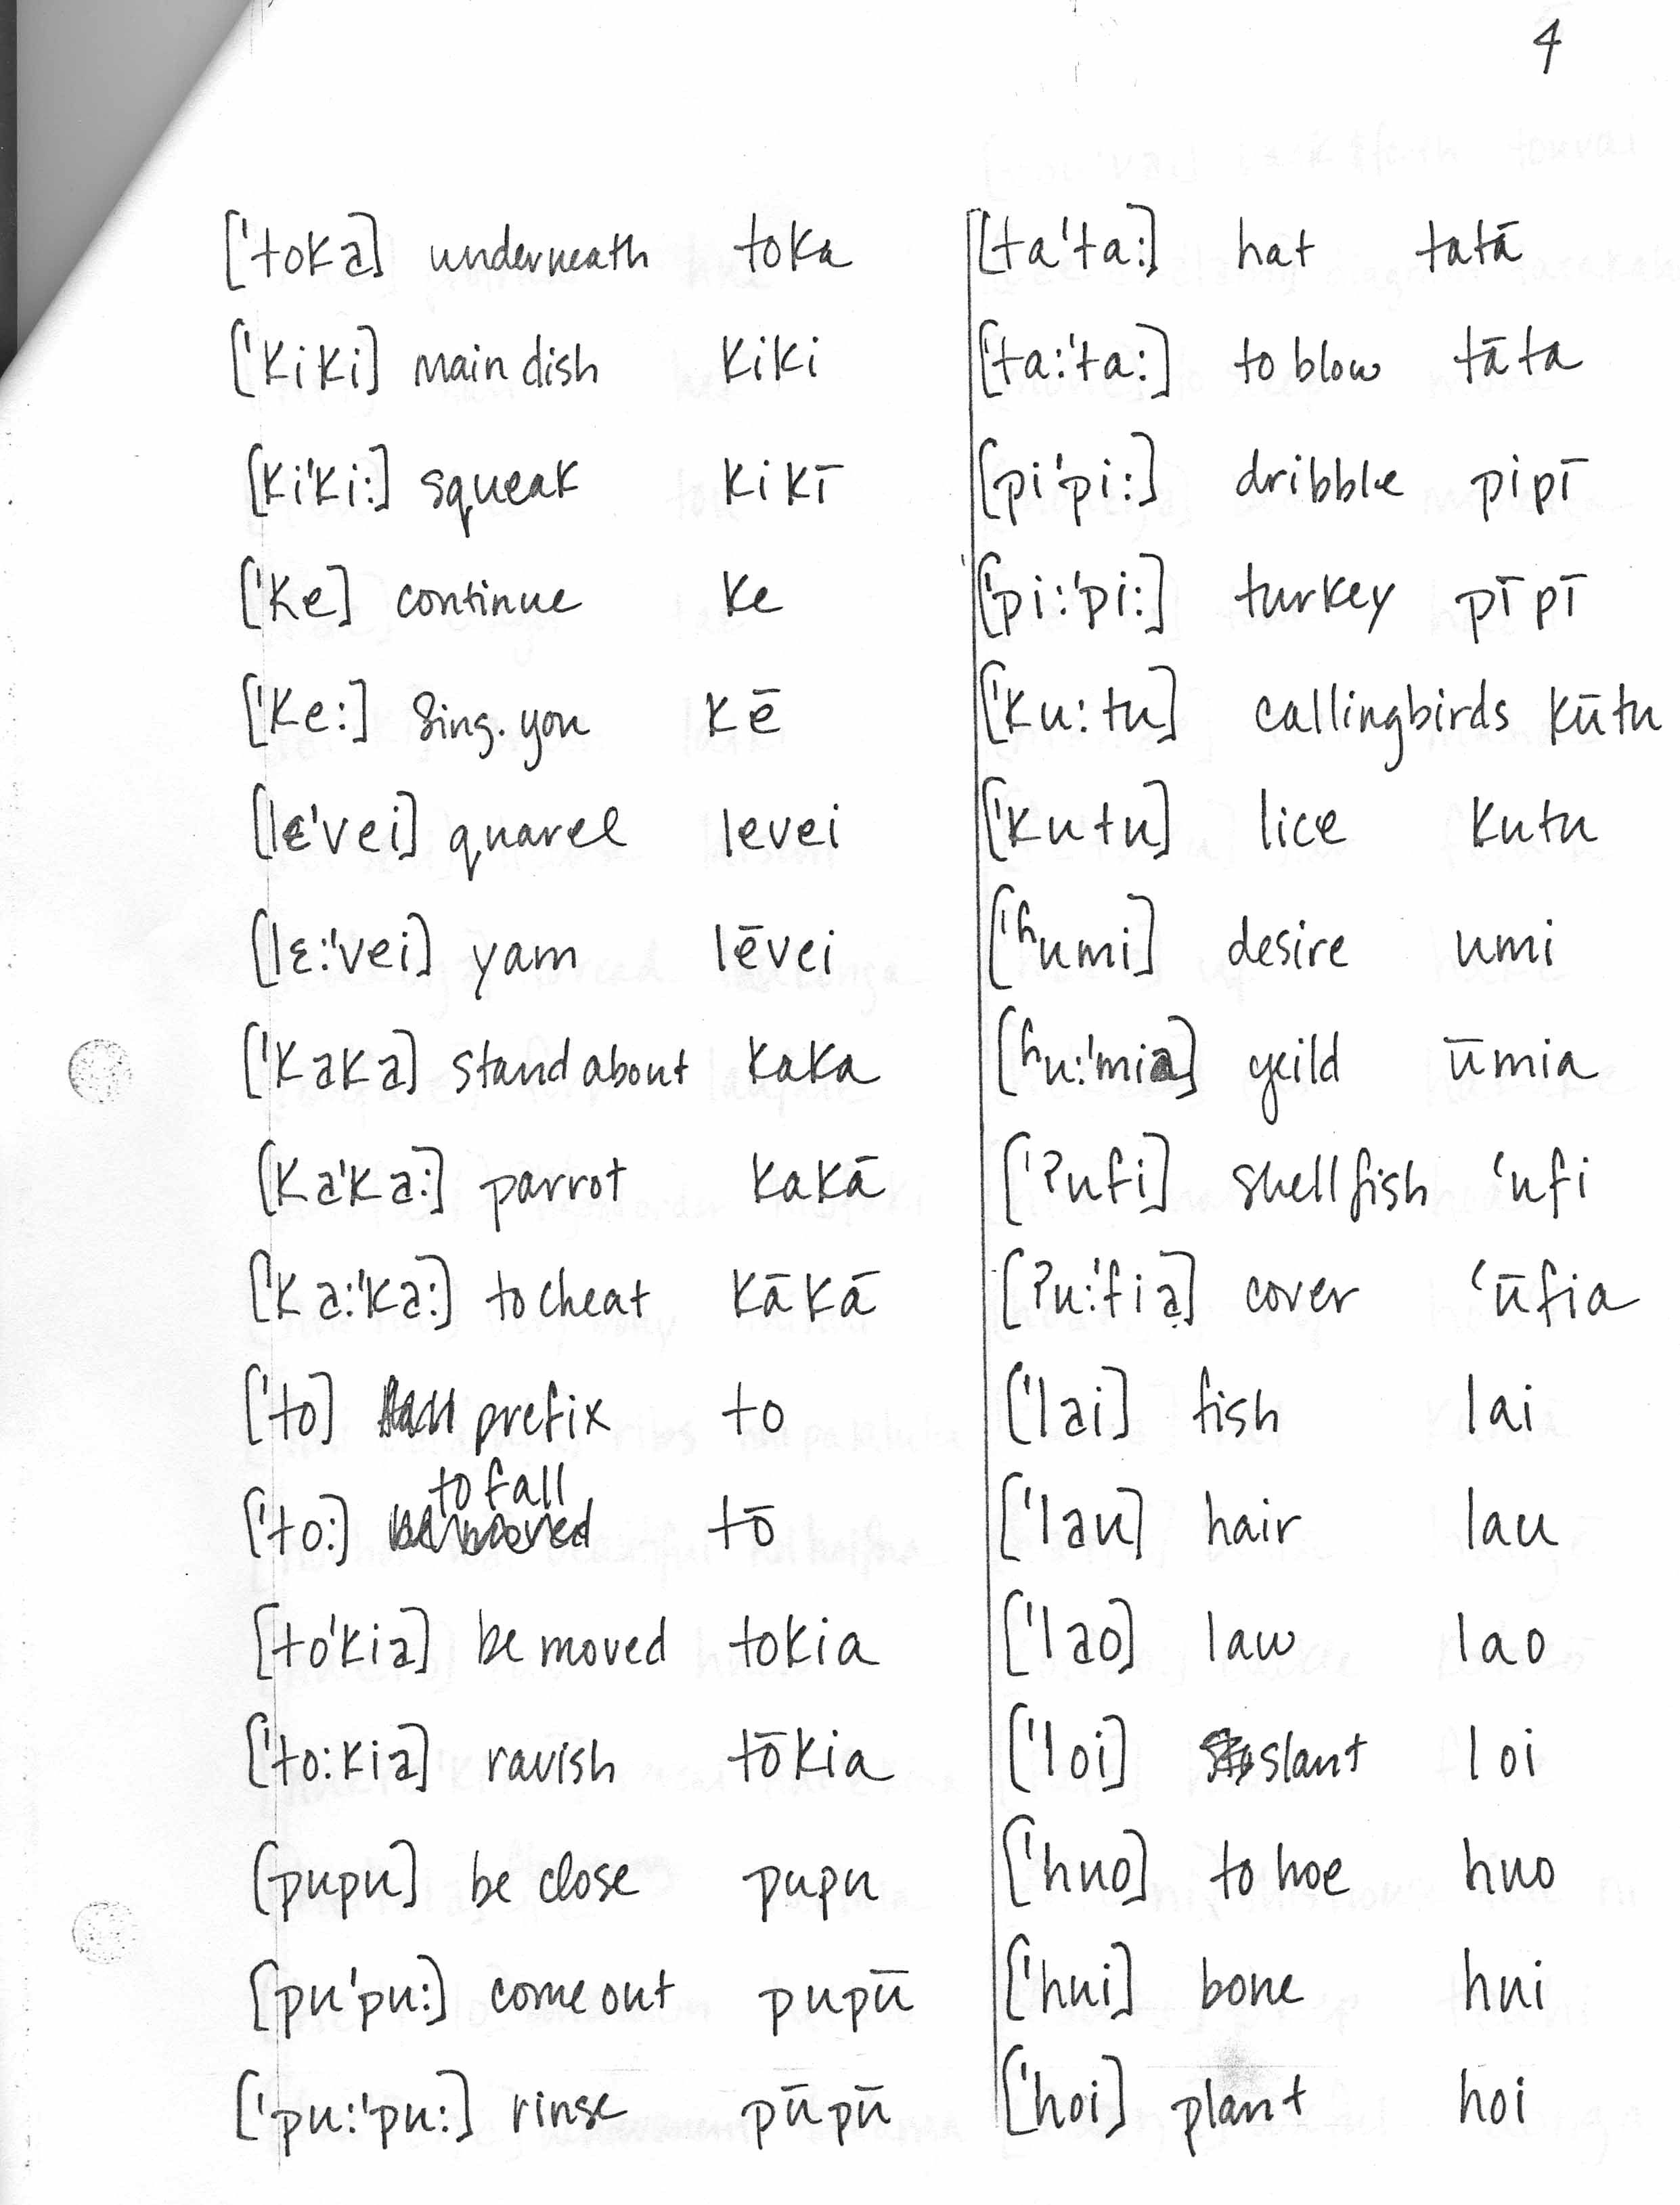 4
['toka] underneath toka
['kiki] main dish kiki
[ki'ki:] squeak kikī
['ke] continue ke
['ke:] Sing. you kē
[lɛ'vei] quarel levei
[lɛ:'vei] yam lēvei
['kaka] stand about kaka
[ka'ka:] parrot kakā
['ka:'ka:] to cheat kākā
['to] prefix to
to fall
['to:] be moved tō
[to'kia] be moved tokia
['to:kia] ravish tōkia
[pupu] be close pupu
[pu'pu:] come out pupū
['pu:'pu:] rinse pūpū
[ta'ta:] hat tatā
['ta:'ta:] to blow tāta
[pi'pi:] dribble pipī
['pi:'pi:] turkey pīpī
['ku:tu] callingbirds kūtu
['kutu] lice kutu
['ʰumi] desire umi
[ʰu:'mia] yeild ūmia
['ʔufi] shellfish ʻufi
[ʔu:'fia] cover ʻūfia
['lai] fish lai
['lau] hair lau
['lao] law lao
['loi] slant loi
['huo] to hoe huo
['hui] bone hui
['hoi] plant hoi